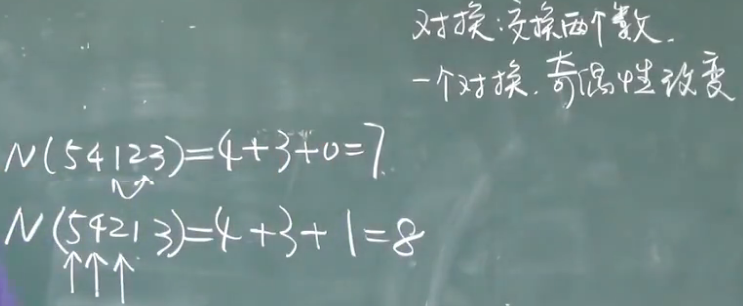 对换:交换两个数.
一个对换.奇偶性改变
N(54123)=4+3+0=7.
N(54213)=4+3+1=8